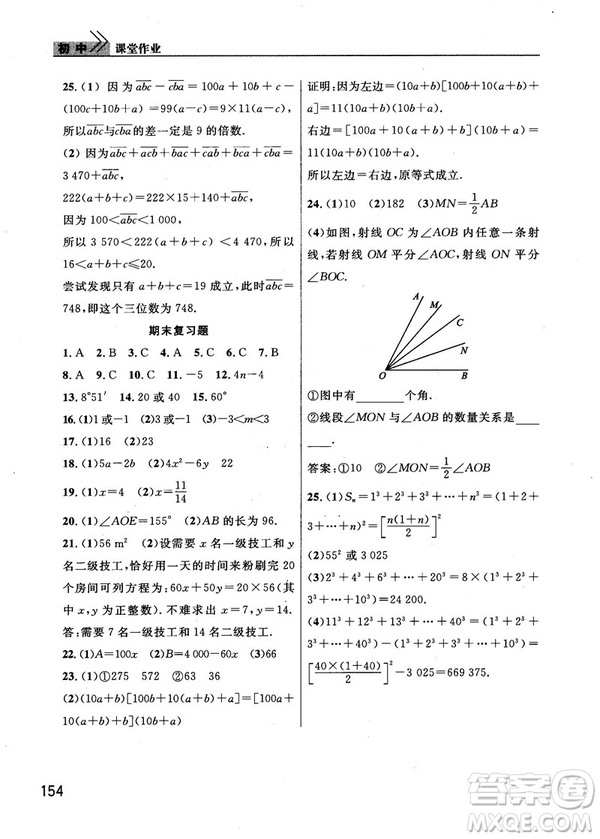 初中
课堂作业
25. (1) 因为abc－cba＝100a＋10b＋c－
(100c＋10b＋a)＝99(a－c)＝9×11(a－c).
所以abc与cba的差一定是 9 的倍数.
(2) 因为abc＋acb＋bac＋bca＋cab＋cba＝
3 470＋abc,
222(a＋b＋c)＝222×15＋140＋abc.
因为 100＜abc＜1 000,
所以 3 570＜222(a＋b＋c)＜4 470, 所以
16＜a＋b＋c≤20.
尝试发现只有 a＋b＋c＝19 成立, 此时abc＝
748, 即这个三位数为 748.
期末复习题
1. A 2. B 3. C 4. A 5. C 6. B 7. C
8. A 9. C 10. A 11. －5 12. 4n－4
13. 8°51′ 14. 20 或 40 15. 60°
16. (1)1 或－1 (2)1 或－5 (3)－3＜m＜3
17. (1)16 (2)23
18. (1)5a－2b (2)4x²－6y
19. (1)x＝4 (2)x＝11/14
20. (1)∠AOE＝155° (2)AB 的长为 96.
21. (1)56 m² (2)设需要 x 名一级技工和 y
名二级技工, 恰好用一天的时间来粉刷完 20
个房间可列方程为: 60x＋50y＝20×56(其中
x, y 为正整数). 不难求出 x＝7, y＝14.
答: 需要 7 名一级技工和 14 名二级技工.
22. (1)A＝100 (2)B＝4 000－20x (3)66
23. (1)①275 572 ②63 36
(2)(10a＋b)[100b＋10(a＋b)＋a]＝[100a＋
10(a＋b)＋b](10b＋a)
证明: 因为左边＝(10a＋b)[100b＋10(a＋b)＋
a]＝11(10a＋b)(10b＋a)
右边＝[100a＋10(a＋b)＋b](10b＋a)＝
11(10a＋b)(10b＋a).
所以左边＝右边, 原等式成立.
24. (1)10 (2)182 (3)MN＝1/2AB
(4)如图, 射线 OC 为∠AOB 内任意一条射
线, 若射线 OM 平分∠AOC, 射线 ON 平分
∠BOC.
A
M
C
N
O
B
①图中有______个角.
②线段∠MON与∠AOB的数量关系是____
____.
答案: ①10 ②∠MON＝1/2∠AOB
25. (1)Sₙ＝1³＋2³＋3³＋…＋n³＝(1＋2＋
3＋…＋n)²＝[n(1＋n)/2]²
(2)55² 或 3 025
(3)2³＋4³＋6³＋…＋20³＝8(1³＋2³＋
3³＋…＋10³)＝24 200.
(4)11³＋12³＋13³＋…＋40³＝(1³＋2³＋
3³＋…＋40³)－(1³＋2³＋3³＋…＋10³)＝
[40×(1＋40)/2]²－3 025＝669 375.
154
作业精灵
MXQE.COM